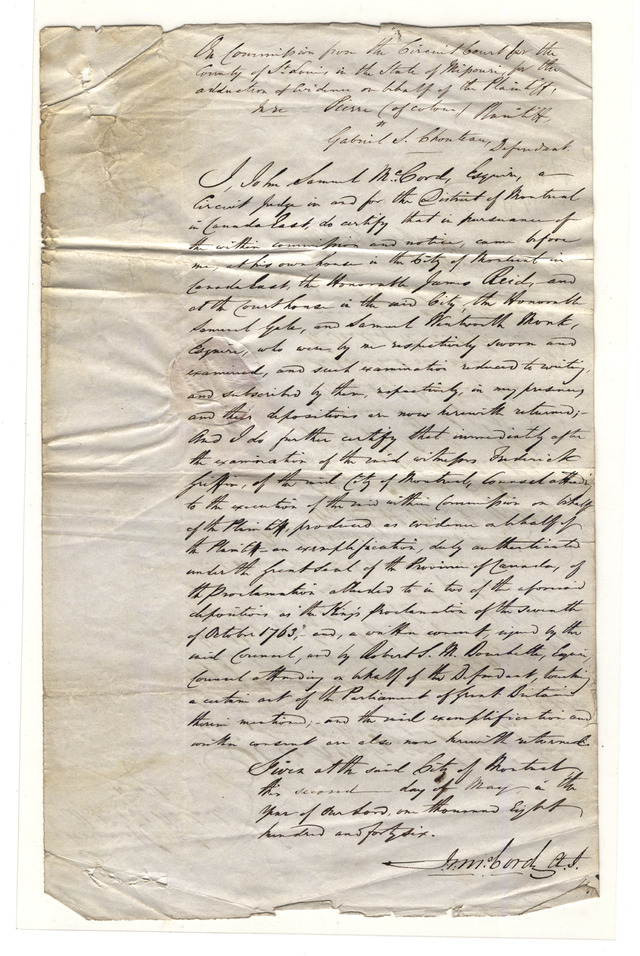 On Commission from the Circuit Court for the
County of St. Louis in the State of Missouri, for the
adduction of Evidence on behalf of the Plaintiff,
In re Pierre (of colour) Plaintiff,
vs
Gabriel S. Chouteau, Defendant.
I, John Samuel McCord, Esquire, a
Circuit Judge in and for the District of Montreal
in Canada East, do certify that in pursuance of
the within commission and notice, came before
me, at his own house in the City of Montreal in
Canada East, the Honorable James Reid, and
at the Court house in the said City, the Honorable
Samuel Gale, and Samuel Wentworth Monk,
Esquire, who were by me respectively sworn and
examined, and such examination reduced to writing,
and subscribed by them, respectively, in my presence,
and their depositions are now herewith returned;-
And I do further certify that immediately after
the examination of the said witnesses Frederick
Griffin, of the said City of Montreal, counsel attending
to the execution of the said within Commission on behalf
of the Plaintiff, produced as evidence on behalf of
the Plaintiff - an exemplification, duly authenticated
under the Great Seal of the Province of Canada, of
the Proclamation alluded to in two of the aforesaid
depositions as the King's Proclamation of the seventh
of October 1763,- and, a written consent, signed by the
said Counsel, and by Robert S. M. Bouchette, Esquire,
Counsel attending on behalf of the Defendant, touching
a certain act of the Parliament of Great Britain
therein mentioned;- and the said exemplification and
written consent are also now herewith returned.
Given at the said City of Montreal
this second day of May, in the
year of our Lord, one thousand Eight
hundred and forty six.
J. S. McCord,